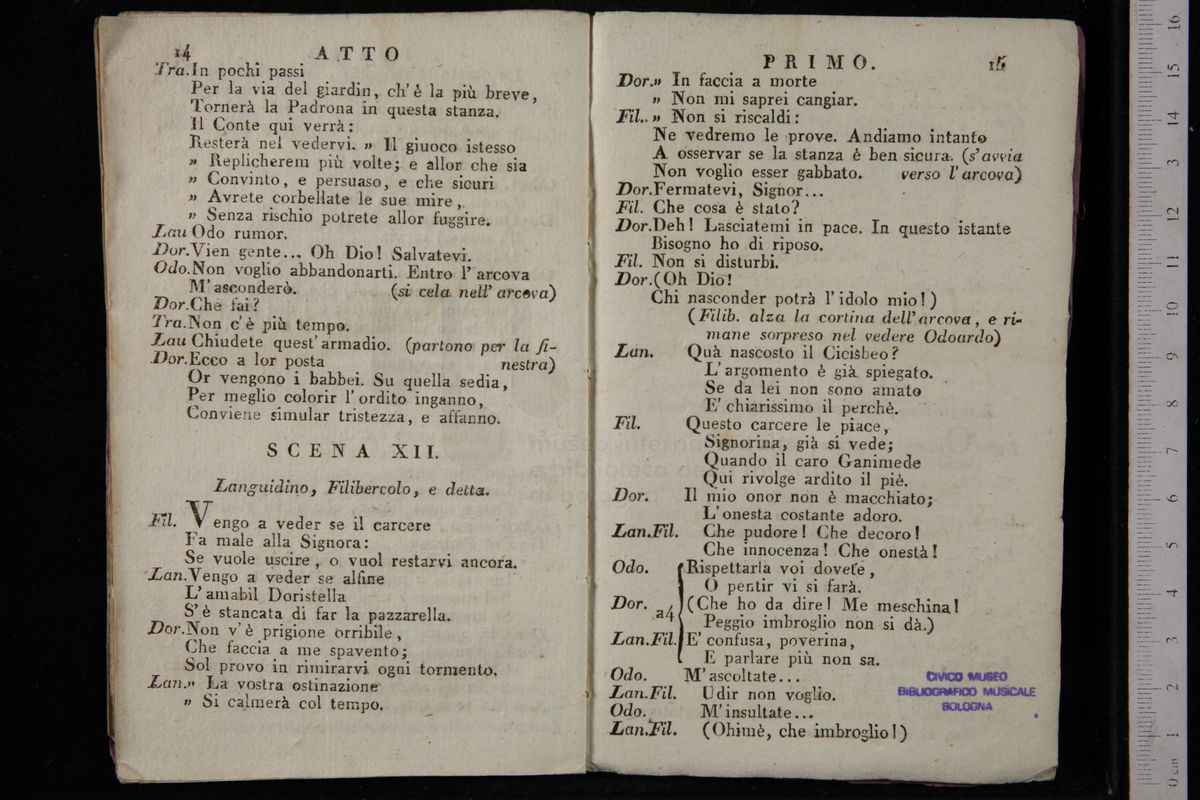 14 ATTO
Tra.In pochi passi
Per la via del giardin, ch'è la più breve,
Tornerà la Padrona in questa stanza.
Il Conte qui verrà:
Resterà nel vedervi. » Il giuoco istesso
» Replicherem più volte; e allor che sia
» Convinto, e persuaso, e che sicuri
» Avrete corbellate le sue mire,
» Senza rischio potrete allor fuggire.
Lau Odo rumor.
Dor.Vien gente... Oh Dio! Salvatevi.
Odo.Non voglio abbandonarti. Entro l'arcova
M'asconderò. (si cela nell'arcova)
Dor.Che fai?
Tra.Non c'è più tempo.
Lau Chiudete quest'armadio. (partono per la fi-
Dor.Ecco a lor posta nestra)
Or vengono i babbei. Su quella sedia,
Per meglio colorir l'ordito inganno,
Conviene simular tristezza, e affanno.
SCENA XII.
Languidino, Filibercolo, e detta.
Fil. Vengo a veder se il carcere
Fa male alla Signora:
Se vuole uscire, o vuol restarvi ancora.
Lan.Vengo a veder se alfine
L'amabil Doristella
S'è stancata di far la pazzarella.
Dor.Non v'è prigione orribile,
Che faccia a me spavento;
Sol provo in rimirarvi ogni tormento.
Lan.» La vostra ostinazione
» Si calmerà col tempo.
PRIMO. 15
Dor.» In faccia a morte
» Non mi saprei cangiar.
Fil.. » Non si riscaldi:
Ne vedremo le prove. Andiamo intanto
A osservar se la stanza è ben sicura. (s'avvia
Non voglio esser gabbato. verso l'arcova)
Dor.Fermatevi, Signor...
Fil. Che cosa è stato?
Dor.Deh! Lasciatemi in pace. In questo istante
Bisogno ho di riposo.
Fil. Non si disturbi.
Dor.(Oh Dio!
Chi nasconder potrà l'idolo mio!)
(Filib. alza la cortina dell'arcova, e ri-
mane sorpreso nel vedere Odoardo)
Lan. Quà nascosto il Cicisbeo?
L'argomento è già spiegato.
Se da lei non sono amato
E' chiarissimo il perchè.
Fil. Questo carcere le piace,
Signorina, già si vede;
Quando il caro Ganimede
Qui rivolge ardito il piè.
Dor. Il mio onor non è macchiato;
L'onesta costante adoro.
Lan.Fil. Che pudore! Che decoro!
Che innocenza! Che onestà!
Odo. Rispettarla voi dovete,
O pentir vi si farà.
Dor. a4 (Che ho da dire! Me meschina!
Peggio imbroglio non si dà.)
Lan.Fil. E' confusa, poverina,
E parlare più non sa.
Odo. M'ascoltate...
Lan.Fil. Udir non voglio.
Odo. M'insultate...
Lan.Fil. (Ohimè, che imbroglio!)
CIVICO MUSEO
BIBLIOGRAFICO MUSICALE
BOLOGNA
0 cm 1 2 3 4 5 6 7 8 9 10 11 12 13 14 15 16